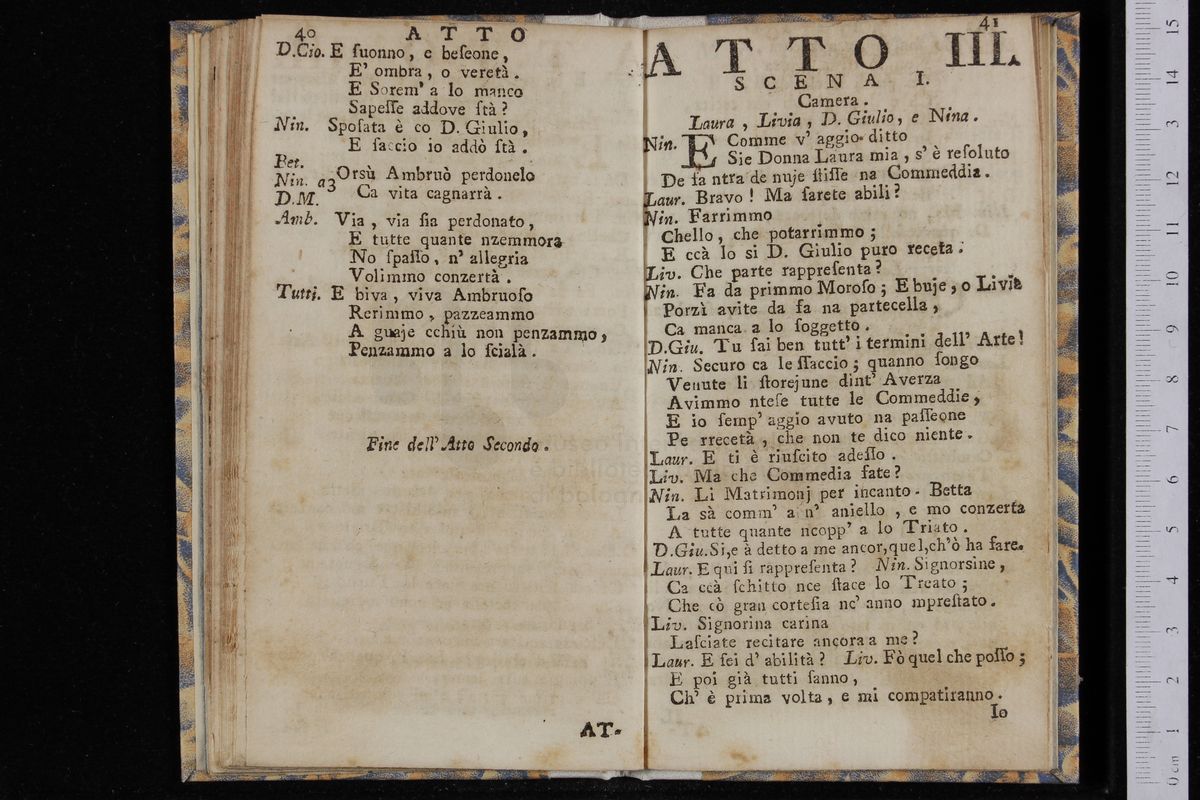 40 ATTO
D.Cio. E ſuonno, e beſeone,
E' ombra, o veretà.
E Sorem' a lo manco
Sapeſſe addove ſtà?
Nin. Spoſata è co D. Giulio,
E ſaccio io addò ſtà.
Bet.
Nin. a3 Orsù Ambruò perdonelo
D.M. Ca vita cagnarrà.
Amb. Via, via ſia perdonato,
E tutte quante nzemmora
No ſpaſſo, n' allegria
Volimmo conzertà.
Tutti. E biva, viva Ambruoſo
Rerimmo, pazzeammo
A guaje cchiù non penzammo,
Penzammo a lo ſcialà.
Fine dell' Atto Secondo.
AT-
41
ATTO III.
SCENA I.
Camera.
Laura, Livia, D. Giulio, e Nina.
Nin. E Comme v' aggio ditto
Sie Donna Laura mia, s' è reſoluto
De fa ntra de nuje ſtiſſe na Commeddia.
Laur. Bravo! Ma ſarete abili?
Nin. Farrimmo
Chello, che potarrimmo;
E ccà lo si D. Giulio puro receta.
Liv. Che parte rappreſenta?
Nin. Fa da primmo Moroſo; E buje, o Livia
Porzì avite da fa na partecella,
Ca manca a lo ſoggetto.
D.Giu. Tu ſai ben tutt' i termini dell' Arte!
Nin. Securo ca le ſſaccio; quanno ſongo
Venute li ſtorejune dint' Averza
Avimmo nteſe tutte le Commeddie,
E io ſemp' aggio avuto na paſſeone
Pe rrecetà, che non te dico niente.
Laur. E ti è riuſcito adeſſo.
Liv. Ma che Commedia fate?
Nin. Li Matrimonj per incanto. Betta
La sà comm' a n' aniello, e mo conzerta
A tutte quante ncopp' a lo Triato.
D.Giu. Si, e à detto a me ancor, quel, ch'ò ha fare.
Laur. E qui ſi rappreſenta? Nin. Signorsine,
Ca ccà ſchitto nce ſtace lo Treato;
Che cò gran corteſia nc' anno mpreſtato.
Liv. Signorina carina
Laſciate recitare ancora a me?
Laur. E ſei d' abilità? Liv. Fò quel che poſſo;
E poi già tutti ſanno,
Ch' è prima volta, e mi compatiranno.
Io